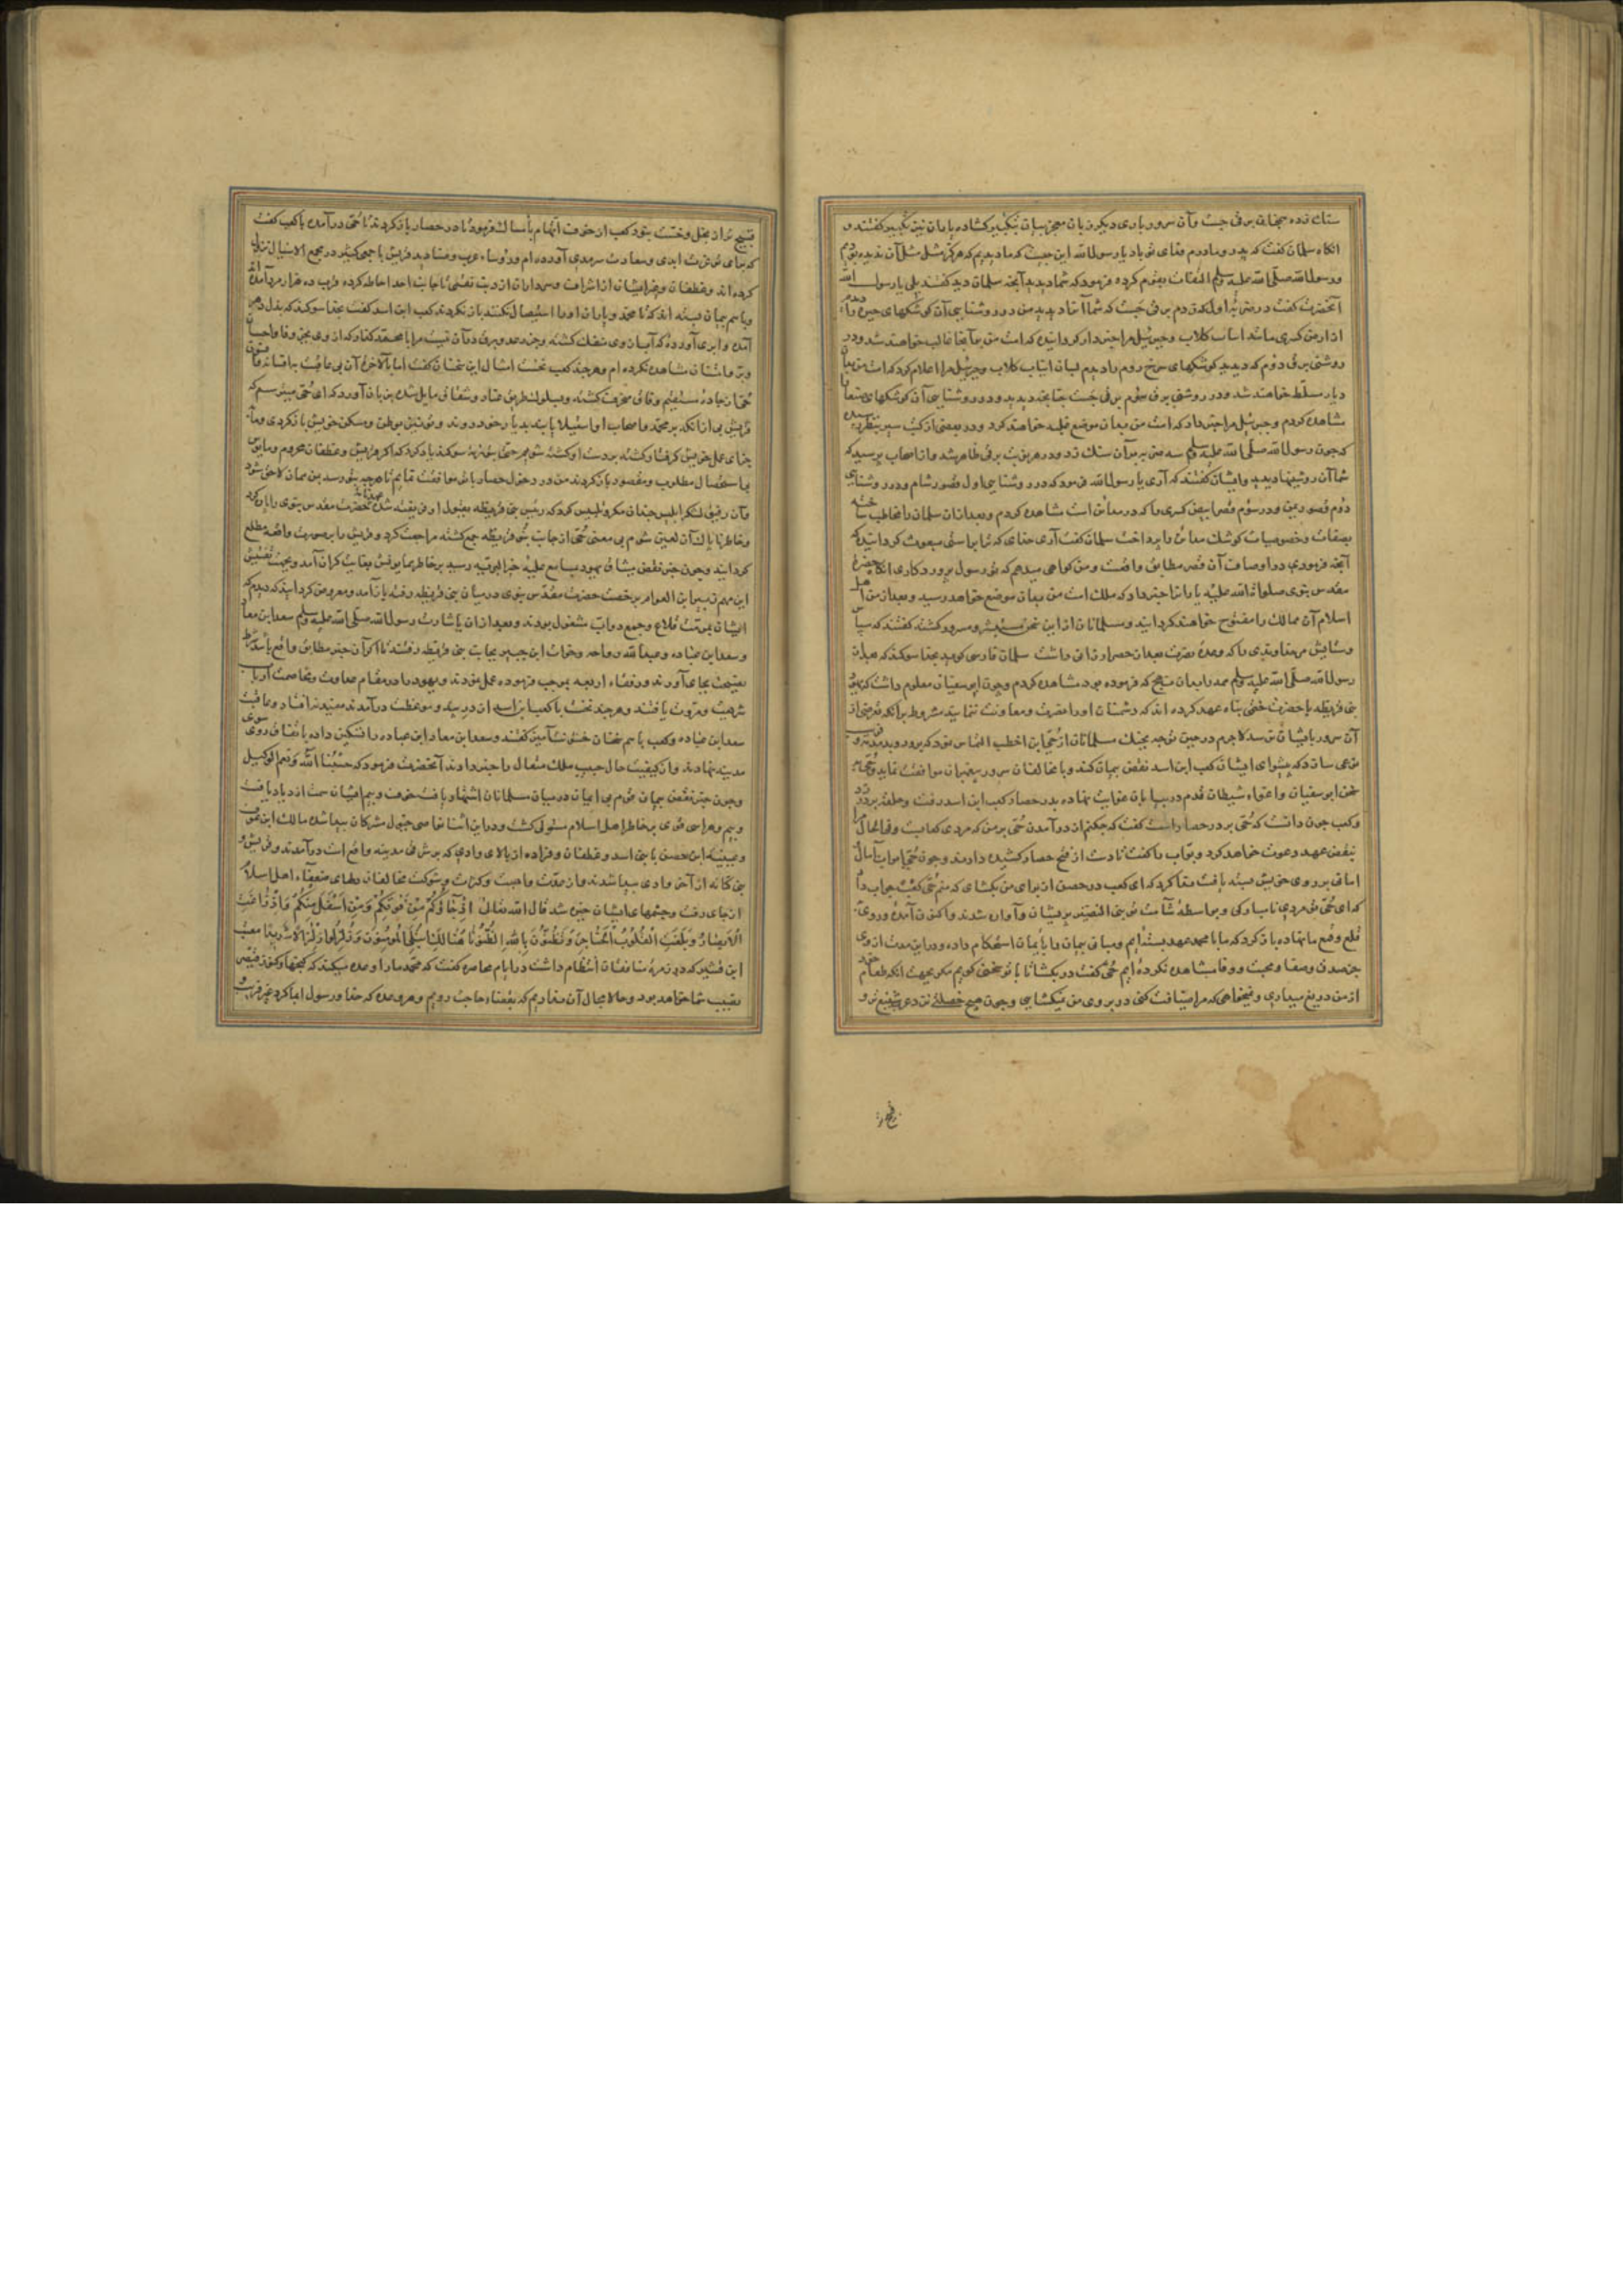 ستان زده همچنان برقی جست و آن سرور باری دیگر زبان معجز بیان بتکبیر کشاده یاران نیز تکبیر گفتند و
انگاه سلمان گفت که پدر و مادرم فدای تو باد یا رسول الله این چیست که ما دیدیم که هرگز مثل آن ندیده بودیم
و رسول الله صلی الله علیه وسلم التفات بقوم کرده فرمود که شما دیدید آنچه سلمان دید گفتند بلی یا رسول الله
آنحضرت گفت در ضربه اول که زدم برقی جست که شما آنرا دیدید من در روشنایی آن کوشکهای حیره را
از ارض کسری مانند انیاب کلاب و جبرئیل مرا خبردار گردانیده که امت من بر آنجا غالب خواهند شد و در
روشنی برق دوم که دیدید کوشکهای سرخ روم را دیدم بسان انیاب کلاب و جبرئیل مرا اعلام کرد که امت من بران
دیار مسلط خواهند شد و در روشنی برق سوم برقی جست چنانچه دیدید و در روشنایی آن کوشکهای صنعا
مشاهده کردم و جبرئیل مرا خبر داد که امت من بدان موضع غلبه خواهند کرد و در بعضی از کتب سیر بنظر رسیده
که چون رسول الله صلی الله علیه وسلم سه ضربه بر آن سنگ زد و در هر نوبت برقی ظاهر شد و از اصحاب پرسید که
شما آن روشنیها دیدید و ایشان گفتند که آری یا رسول الله فرمود که در روشنایی اول قصور شام و در روشنایی
دوم قصور یمن و در سوم قصر ابیض کسری را که در مداین است مشاهده کردم و بعد از آن سلمان را مخاطب ساخته
بصفات و خصوصیات کوشک مداین را پرداخت سلمان گفت آری خدای که ترا براستی مبعوث گردانیده که
آنچه فرمودی در اوصاف آن قصر مطابق واقعست و من گواهی میدهم که تو رسول پروردگاری انگاه حضرت
مقدس نبوی صلوات الله علیه یاران را خبر داد که ملک امت من بدان موضع خواهد رسید و بعد از من اهل
اسلام آن ممالک را مفتوح خواهند گردانید و مسلمانان از این سخن مستبشر و مسرور گشته گفتند که سپاس
و ستایش مر خداوندی را که وعده نصرت بعد از حصر ارزانی داشت سلمان فارسی گوید بخدا سوگند که بعد از
رسول الله صلی الله علیه وسلم همه را بدان منهج که فرموده بود مشاهده کردم و چون ابو سفیان معلوم داشت که یهود
بنی قریظه با حضرت ختمی پناه عهد کرده اند که دشمنان او را نصرت و معاونت ننمایند مشروط بر آنکه تعرضی از
آن سرور بایشان نرسد لاجرم در حین توجه بجنگ مسلمانان از حیی ابن اخطب التماس نمود که برود و بدمدمه و
نوعی سازد که پیشوای ایشان کعب ابن اسد نقض پیمان کند و با مخالفان سرور پیغمبران موافقت نماید و حیی بر
سخن ابو سفیان و اغواء شیطان قدم در بیابان غوایت نهاده بدر حصار کعب ابن اسد رفت و حلقه بر در زد
و کعب چون دانست که حیی بر در حصار است گفت که چکنم از در آمدن حیی بر من که مردی
نقض عهد دعوت خواهد کرد و بواب را گفت تا دست از فتح حصار کشیده دارند و چون حیی ابواب آمال
امانی بر روی خویش بسته یافت ندا کرد که ای کعب در حصن از برای من بکشای که منم حیی کعب جواب داد
که ای حیی تو مردی نامبارکی و بواسطه شآمت تو بنی النضیر پریشان و آواره شدند و اکنون آمده و روی
قلع و قمع ما نهاده بازگرد که ما با محمد عهد بسته ایم و مبانی پیمان را بایمان استحکام داده و در این مدت از وی
بجز صدق و صفا و محبت و وفا مشاهده نکرده ایم حیی گفت در بکشا تا با تو سخنی گویم مگر بجهت آنکه طعام خود
از من دریغ میداری و نمیخواهی که مرا ضیافت کنی در بروی من نمیکشایی و چون هیچ خصلتی نزد عرب شنیع تر و
قبیح
قبیح تر از بخل و خست نبود کعب از خوف اتهام بامساک فرمود تا در حصار باز کردند تا حیی درآمده با کعب گفت
که برای تو عزت ابدی و سعادت سرمدی آورده ام و رؤساء عرب و صنادید قریش با جمعی کثیر در مجمع الاسیال نزول
کرده اند و غطفان و غیر ایشان از اشراف و سرداران از ذنب نقمی تا جانب احد احاطه کرده قریب ده هزار مرد آمده اند
و با هم پیمان بسته اند که تا محمد و یاران او را استیصال نکنند باز نگردند کعب ابن اسد گفت بخدا سوگند که بذل دهر
آمده و ابری آورده که آبهای وی منفک گشته و جز رعد و برق در آن نیست مرا با محمد گذار که از وی بجز وفا و احسان
و بر و امتنان مشاهده نکرده ام و هر چند کعب نخست امثال این سخنان گفت اما بالاخره آن بی عاقبت به افسانه و فسون
حیی از جاده مستقیم وفا منحرف گشته و بسلوک طریق عناد و شقاق مایل شده بر زبان آورد که ای حیی میترسم که
قریش بی از آنکه بر محمد و اصحاب او استیلا یابند بدیار خود روند و تو نیز بوطن و مسکن خویش بازگردی و ما
جزای عمل خویش گرفتار گشته بر دست او کشته شویم حیی بتوریة سوگند یاد کرد که اگر قریش و غطفان محروم و مایوس
بی استحصال مطلوب و مقصود باز گردند من در دخول حصار با تو موافقت نمایم تا هر چه بتو رسد بمن همان لاحق شود
و آن رفیق لشکر ابلیس چندان مکر و تلبیس کرد که رئیس بنی قریظه بقبول او فریفته شده عهدنامه حضرت مقدس نبوی را پاره کرد
و خاطر ناپاک آن لعین شوم بی معنی حیی از جانب بنو قریظه جمع گشته مراجعت کرد و قریش را بر صورت واقعه مطلع
گردانید و چون خبر نقض میثاق یهود بمسامع علیه خیر البریه رسید بر خاطر همایونش بغایت گران آمد و بجهت تفتیش
این مهم زبیر ابن العوام بر حسب حضرت مقدس نبوی در میان بنی قریظه رفته باز آمد و معروض گردانید که دیدم که
ایشان بمرمت قلاع و جمع دواب مشغول بودند و بعد از آن باشارت رسول الله صلی الله علیه وسلم سعد ابن معاذ
و سعد ابن عباده و عبد الله رواحه و خوات ابن جبیر بجانب بنی قریظه رفتند تا اگر آن خبر مطابق واقع باشد شرط
نصیحت بجای آورند و رفقاء اربعه بموجب فرموده عمل نمودند و یهود را در مقام عداوت و مخاصمت ارباب
شریعت و مروت یافتند و هر چند نخست با کعب ابن اسد از در پند و موعظت درآمدند مفید نه افتاد و عاقبت
سعد ابن عباده و کعب با هم سخنان خشونت آمیز گفتند و سعد ابن معاذ ابن عباده را تسکین داده باتفاق روی سوی
مدینه نهادند و از کیفیت حال حبیب ملک متعال را خبر دادند آنحضرت فرمود که حسبنا الله و نعم الوکیل
و چون خبر نقض پیمان قوم بی ایمان در میان مسلمانان اشتهار یافت خوف و بیم ایشان سمت ازدیاد یافت
و بیم و هراسی قوی بر خاطر اهل اسلام مستولی گشت و در این اثنا نواصی خیول مشرکان پیدا شده مالک ابن عوف
و عیینه ابن حصن با بنی اسد و غطفان و فزاره از بالای وادی که بر شرقی مدینه واقع است درآمدند و قریش و
بنی کنانه از آخر وادی پیدا شدند و از مهابت و هیبت و کثرت و شوکت مخالفان دلهای ضعفاء اهل اسلام
از جای رفت و چشمهای ایشان خیره شد قال الله تعالی اذ جاؤکم من فوقکم و من اسفل منکم و اذ زاغت
الابصار و بلغت القلوب الحناجر و تظنون بالله الظنونا هنالک ابتلی المومنون و زلزلوا زلزالا شدیدا معتب
ابن قشیر که در زمره منافقان انتظام داشت در ایام محاصره گفت که محمد ما را وعده میکند که گنجها و کنوز قیصر
نصیب شما خواهد بود و حالا مجال آن نداریم که بقضاء حاجت رویم و هر وعده که خدا و رسول او با ما کرد غیر فریب و